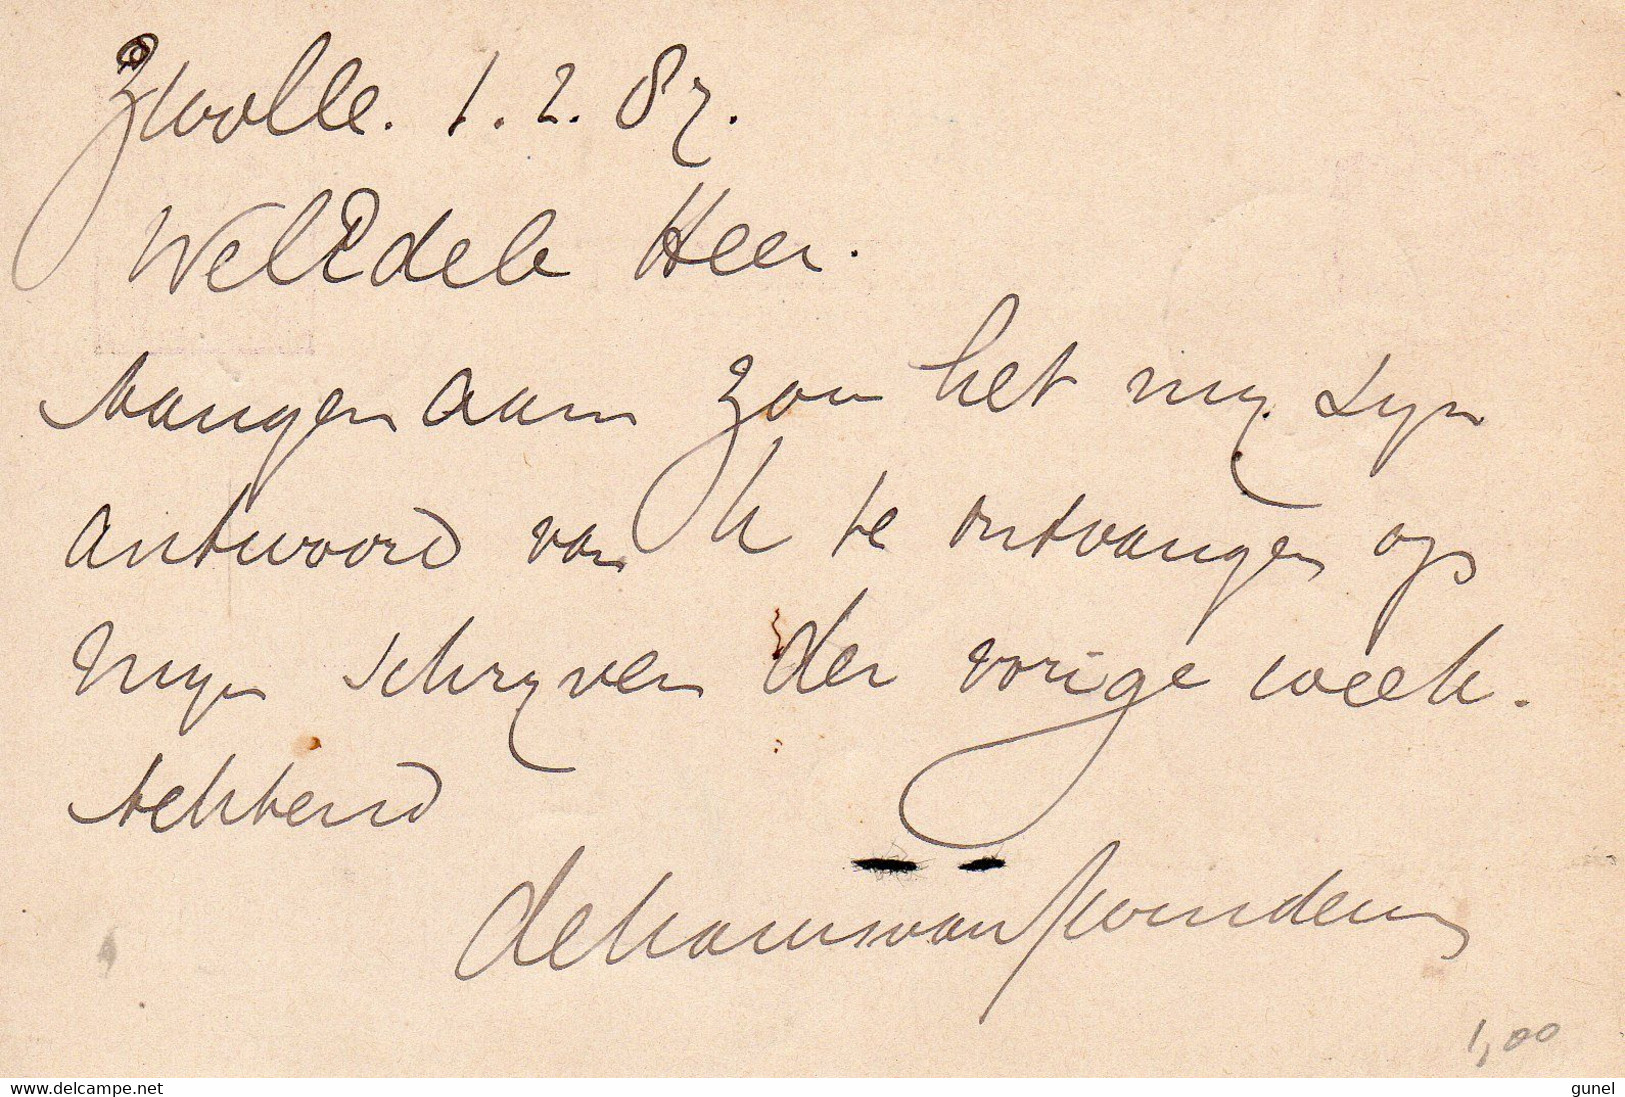 Zwolle. 1.2.87.
WelEdele Heer.
Aangenaam zou het mij zijn
antwoord van U te ontvangen op
mijn schrijven der vorige week.
Achtend
1,00
delcampe.net
gunel